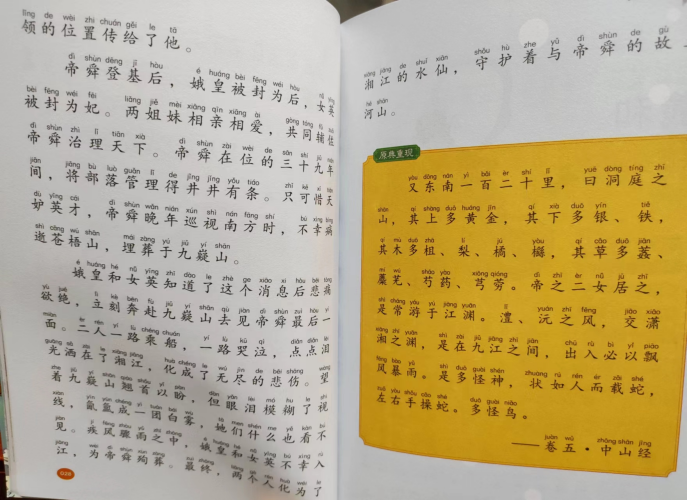 lǐng de wèi zhì chuán gěi le tā
领的位置传给了他。
dì shùn dēng jī hòu é huáng bèi fēng wéi hòu nǚ yīng
帝舜登基后，娥皇被封为后，女英
bèi fēng wéi fēi liǎng jiě mèi xiāng qīn xiāng ài gòng tóng fǔ zuǒ
被封为妃。两姐妹相亲相爱，共同辅佐
dì shùn zhì lǐ tiān xià dì shùn zài wèi de sān shí jiǔ nián
帝舜治理天下。帝舜在位的三十九年
jiān jiāng bù luò guǎn lǐ de jǐng jǐng yǒu tiáo zhǐ kě xī tiān
间，将部落管理得井井有条。只可惜天
dù yīng cái dì shùn wǎn nián xún shì nán fāng shí bú xìng bìng
妒英才，帝舜晚年巡视南方时，不幸病
shì cāng wú shān mái zàng yú jiǔ yí shān
逝苍梧山，埋葬于九嶷山。
é huáng hé nǚ yīng zhī dào le zhè ge xiāo xi hòu bēi tòng
娥皇和女英知道了这个消息后悲痛
yù jué lì kè bēn fù jiǔ yí shān qù jiàn dì shùn zuì hòu yí
欲绝，立刻奔赴九嶷山去见帝舜最后一
miàn èr rén yí lù chéng chuán yí lù kū qì diǎn diǎn lèi
面。二人一路乘船，一路哭泣，点点泪
guāng sǎ zài le xiāng jiāng huà chéng le wú jìn de bēi shāng wàng
光洒在了湘江，化成了无尽的悲伤。望
zhe jiǔ yí shān qiáo shǒu yǐ pàn dàn yǎn lèi mó hu le shì
着九嶷山翘首以盼，但眼泪模糊了视
xiàn yīn yūn chéng yì tuán bái wù tā men shén me yě kàn bú
线，氤氲成一团白雾，她们什么也看不
jiàn jí fēng zhòu yǔ zhī zhōng é huáng hé nǚ yīng bú xìng rù
见。疾风骤雨之中，娥皇和女英不幸入
jiāng wèi dì shùn xùn zàng zuì zhōng liǎng gè rén huà wéi le
江，为帝舜殉葬。最终，两个人化为了
xiāng jiāng de shuǐ xiān shǒu hù zhe yǔ dì shùn de gù
湘江的水仙，守护着与帝舜的故
hé shān
河山。
原典重现
yòu dōng nán yì bǎi èr shí lǐ yuē dòng tíng zhī
又东南一百二十里，曰洞庭之
shān qí shàng duō huáng jīn qí xià duō yín tiě
山，其上多黄金，其下多银、铁，
qí mù duō zhā lí jú yòu qí cǎo duō jiān
其木多柤、梨、橘、櫾，其草多葌、
mí wú sháo yào xiōng qióng dì zhī èr nǚ jū zhī
蘪芜、芍药、芎䓖。帝之二女居之，
shì cháng yóu yú jiāng yuān lǐ yuán zhī fēng jiāo xiāo
是常游于江渊。澧、沅之风，交潇
xiāng zhī yuān shì zài jiǔ jiāng zhī jiān chū rù bì yǐ piāo
湘之渊，是在九江之间，出入必以飘
fēng bào yǔ shì duō guài shén zhuàng rú rén ér zài shé
风暴雨。是多怪神，状如人而载蛇，
zuǒ yòu shǒu cāo shé duō guài niǎo
左右手操蛇。多怪鸟。
juàn wǔ zhōng shān jīng
——卷五·中山经